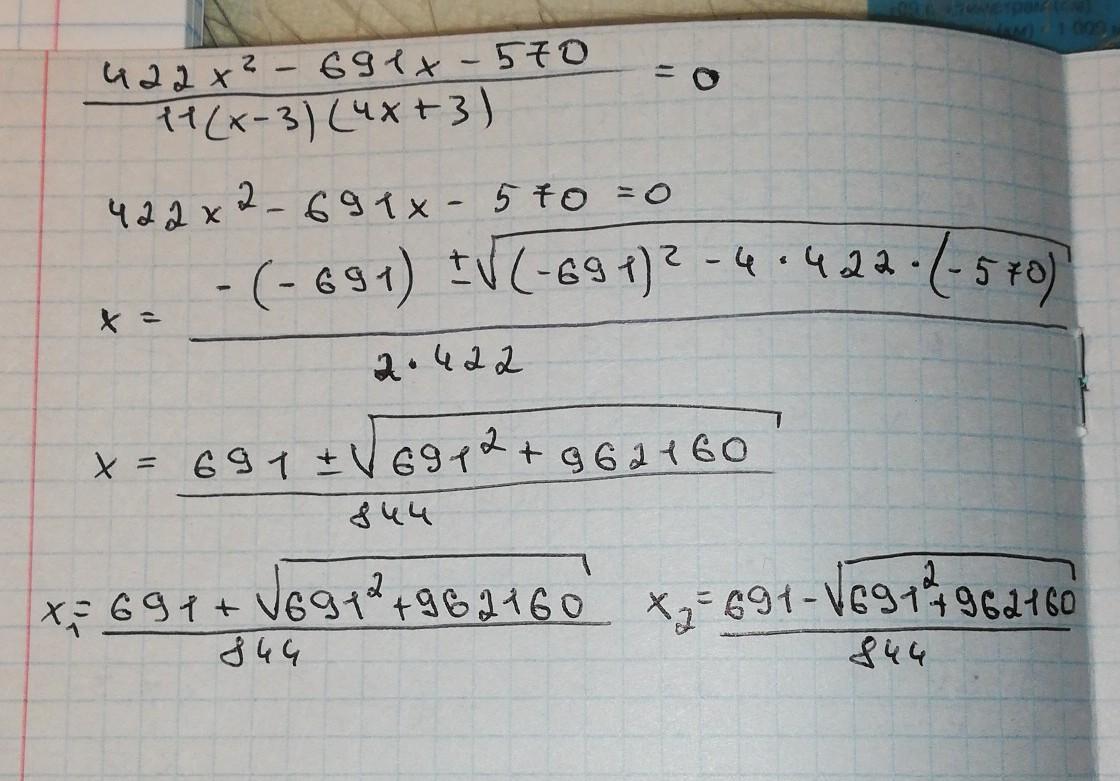 422x² - 691x - 570 / 11(x-3)(4x+3) = 0
422x² - 691x - 570 = 0
x = -(-691) ± √(-691)² - 4 · 422 · (-570) / 2 · 422
x = 691 ± √691² + 962160 / 844
x₁ = 691 + √691² + 962160 / 844 x₂ = 691 - √691² + 962160 / 844